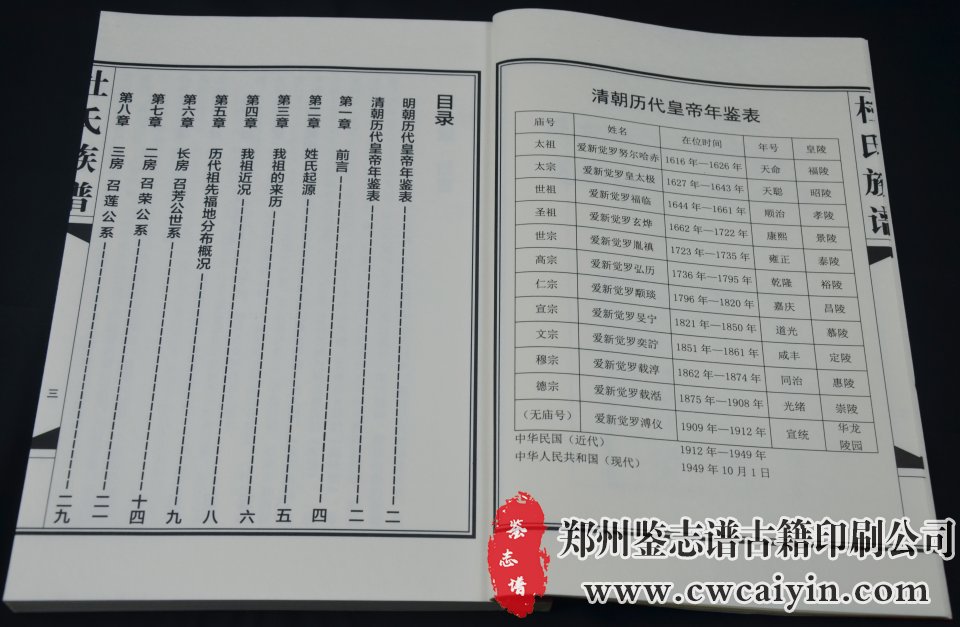 目录
明朝历代皇帝年鉴表 二
清朝历代皇帝年鉴表 二
第一章 前言 四
第二章 姓氏起源 五
第三章 我祖的来历 六
第四章 我祖近况 八
第五章 历代祖先福地分布概况 九
第六章 长房 召芳公世系 十四
第七章 二房 召荣公系 二一
第八章 三房 召莲公系 二九
杜氏族谱
三
清朝历代皇帝年鉴表
庙号 姓名 在位时间 年号 皇陵
太祖 爱新觉罗努尔哈赤 1616 年—1626 年 天命 福陵
太宗 爱新觉罗皇太极 1627 年—1643 年 天聪 昭陵
世祖 爱新觉罗福临 1644 年—1661 年 顺治 孝陵
圣祖 爱新觉罗玄烨 1662 年—1722 年 康熙 景陵
世宗 爱新觉罗胤禛 1723 年—1735 年 雍正 泰陵
高宗 爱新觉罗弘历 1736 年—1795 年 乾隆 裕陵
仁宗 爱新觉罗颙琰 1796 年—1820 年 嘉庆 昌陵
宣宗 爱新觉罗旻宁 1821 年—1850 年 道光 慕陵
文宗 爱新觉罗奕詝 1851 年—1861 年 咸丰 定陵
穆宗 爱新觉罗载淳 1862 年—1874 年 同治 惠陵
德宗 爱新觉罗载湉 1875 年—1908 年 光绪 崇陵
(无庙号) 爱新觉罗溥仪 1909 年—1912 年 宣统 华龙陵园
中华民国（近代） 1912 年—1949 年
中华人民共和国（现代） 1949 年 10 月 1 日
杜氏族谱
鉴志谱
郑州鉴志谱古籍印刷公司
www.cwcaiyin.com